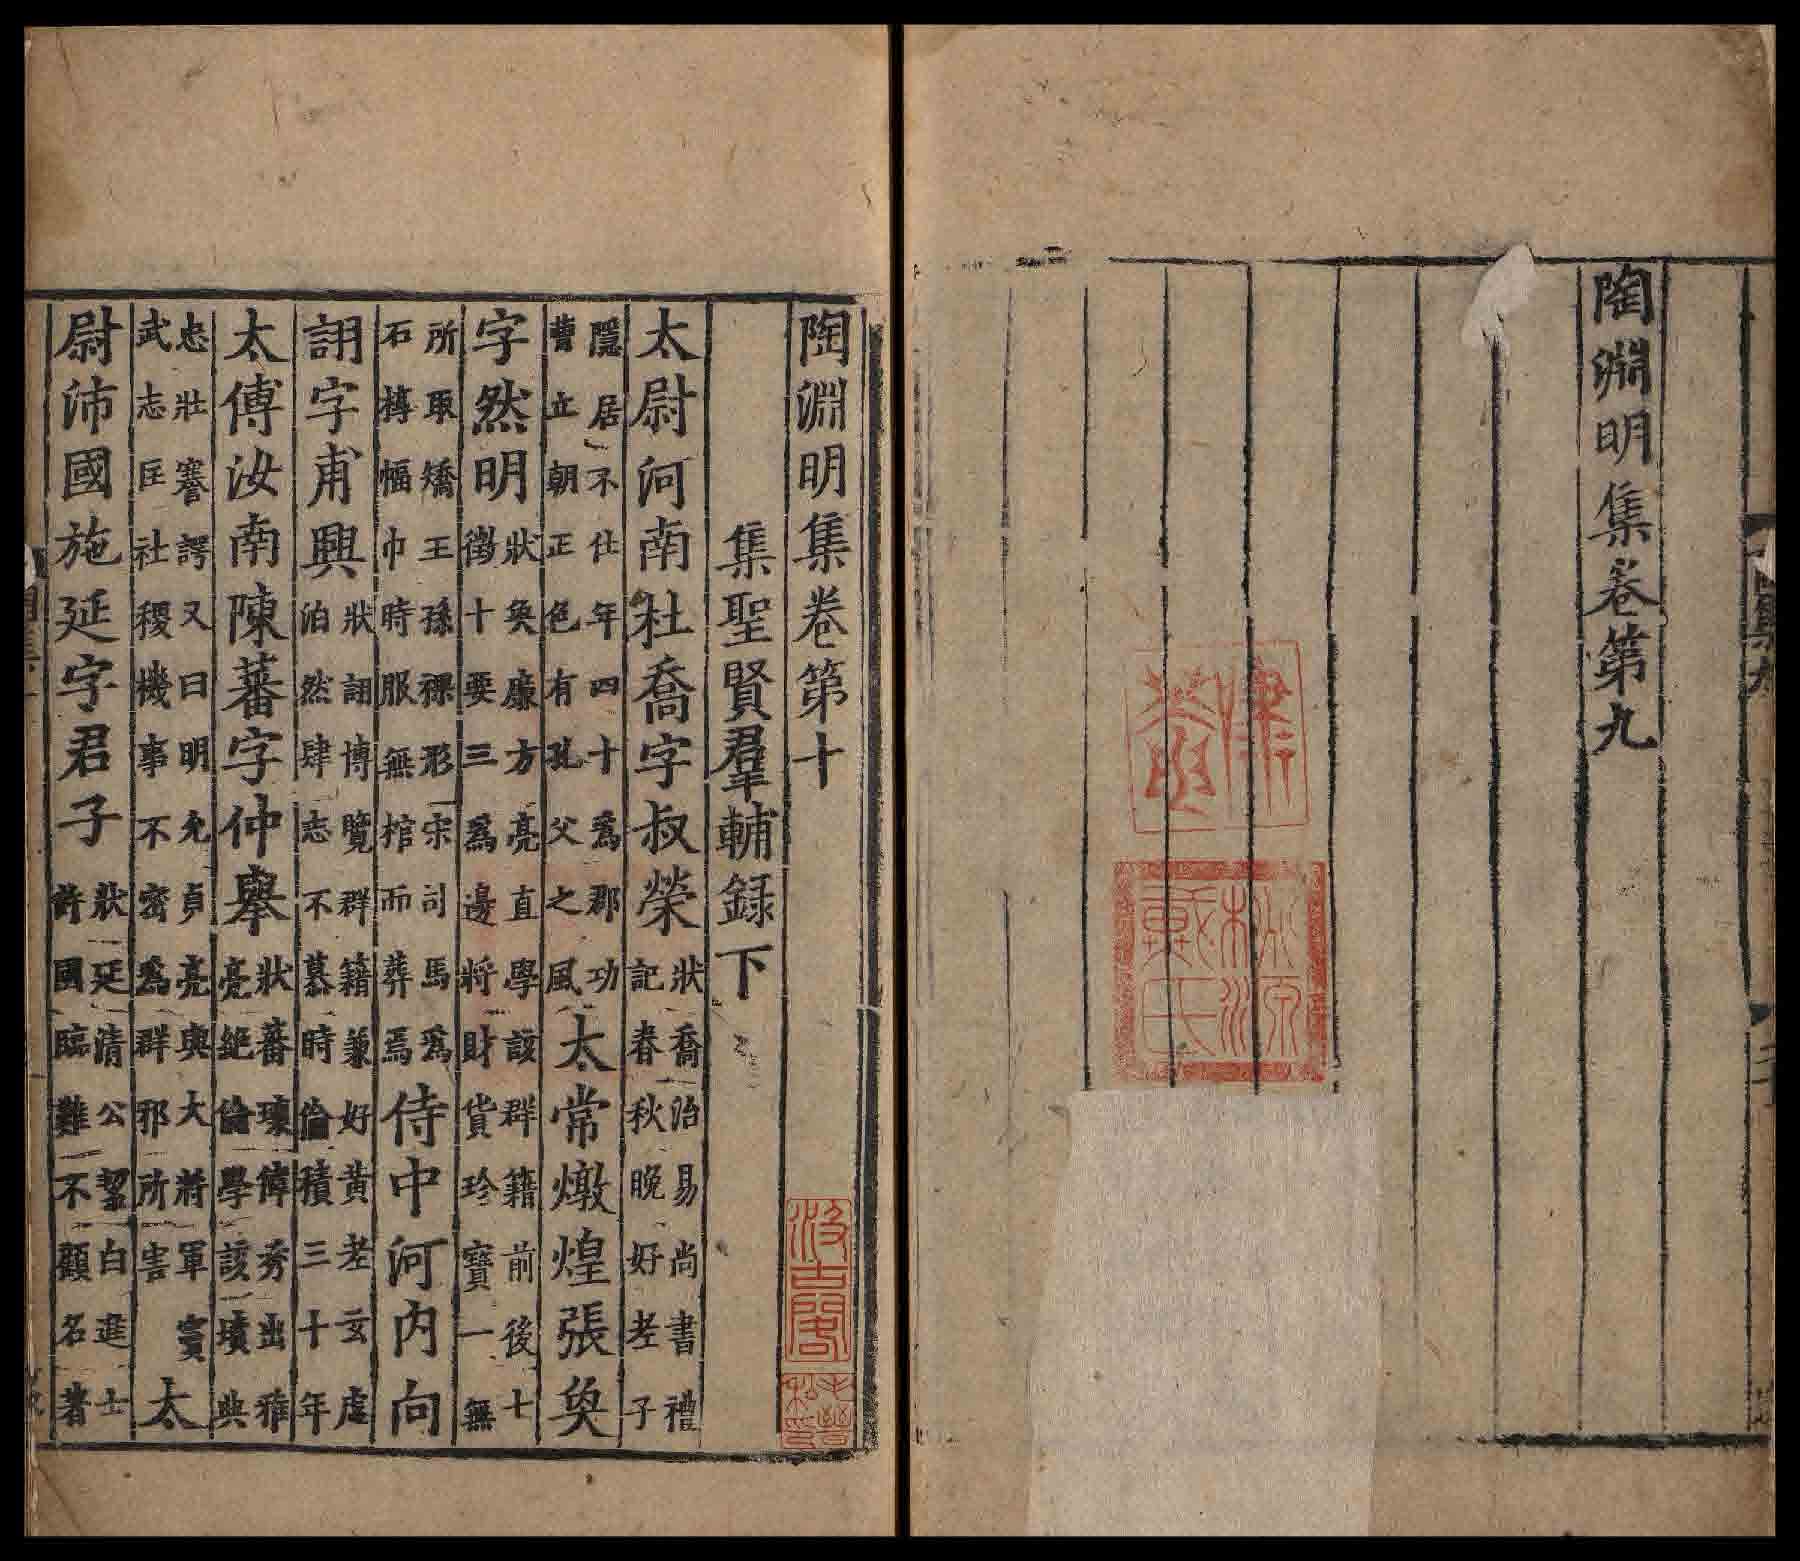 陶淵明集卷第九
桃源戴氏
陶淵明集卷第十
汲古閣
毛晉私印
集聖賢羣輔録下
太尉河南杜喬字叔榮狀喬治易尚書禮記春秋晚好老子
隱居不仕年四十爲郡功曹立朝正色有孔父之風太常燉煌張奐
字然明狀奐廉方亮直學該群籍前後七徵十要三爲邊將財貨珍寶一無
所取矯王孫裸形宋司馬爲石槨幅巾時服無棺而葬焉侍中河内向
詡字甫興狀詡博覽群籍兼好黄老玄虚泊然肆志不慕時倫積三十年
太傅汝南陳蕃字仲舉狀蕃瓌偉秀出雅亮絶倫學該墳典
忠壯謇諤又曰明允貞亮與大將軍竇武志匡社稷機事不密爲群邪所害太
尉沛國施延字君子狀延清公絜白進士許國臨難不顧名著